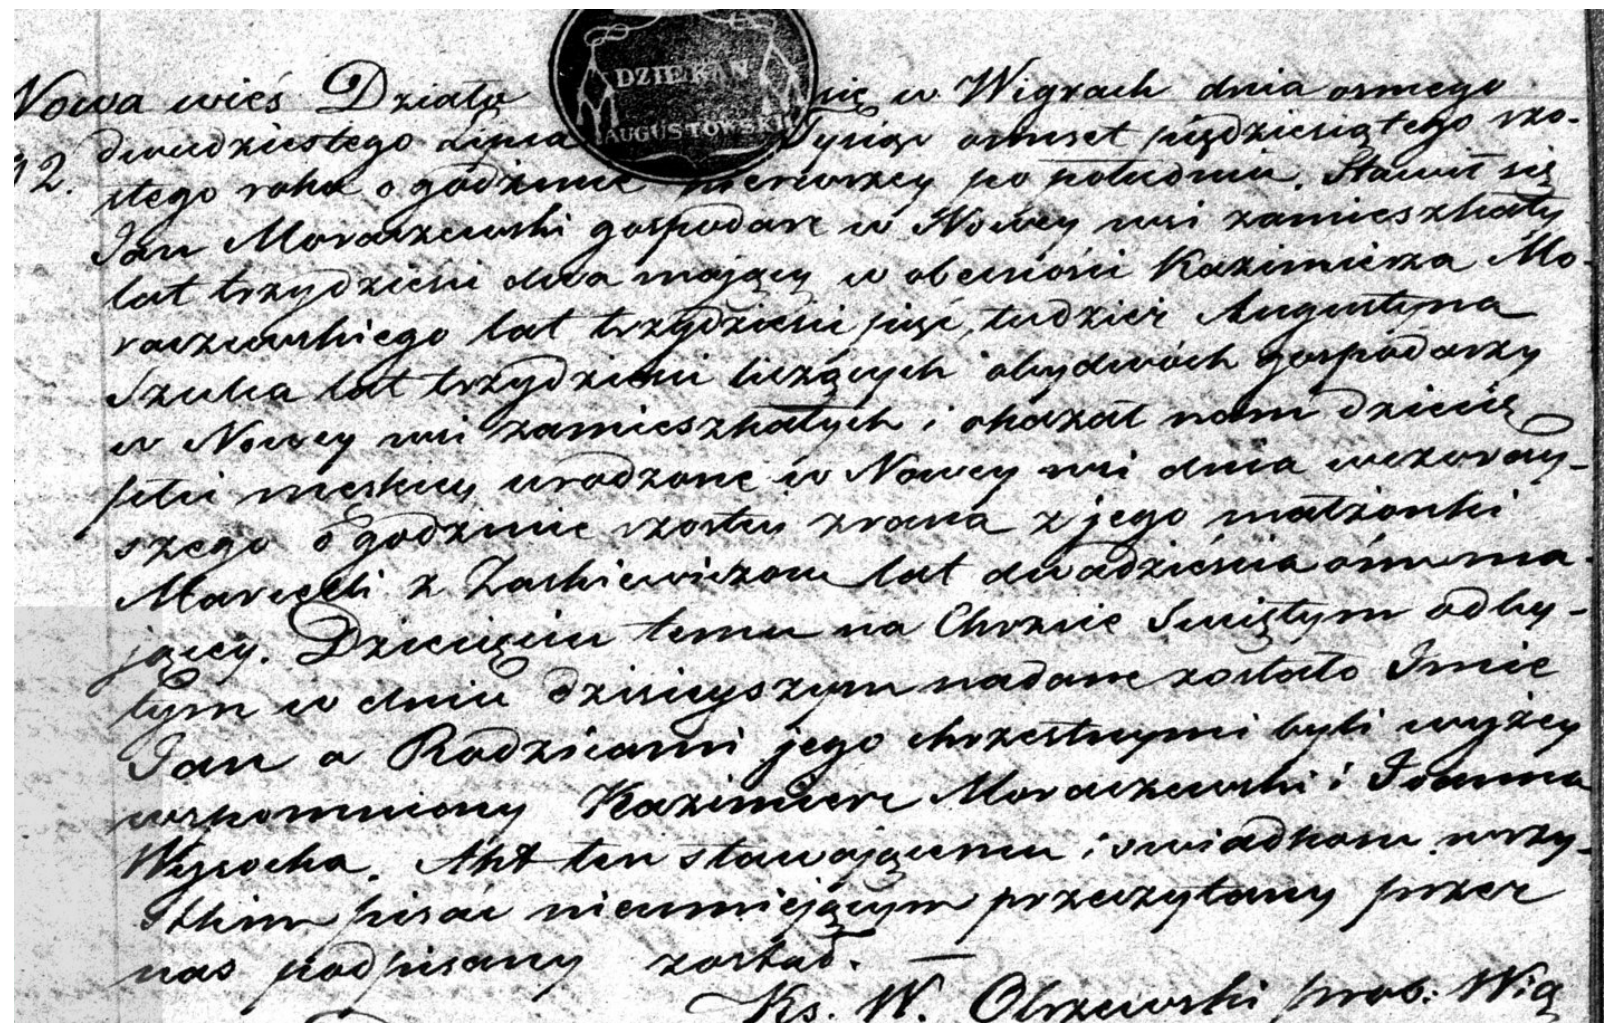 DZIEKAN
AUGUSTOWSKI
Nowa wieś Działo się w Wigrach dnia osmego
12. dwudziestego Lipca Tysiąc osmset pięćdziesiątego szo-
stego roku o godzinie pierwszey po południu. Stawił się
Jan Moraczewski gospodarz w Nowey wsi zamieszkały
lat trzydzieści dwa maiący w obecności Kazimierza Mo-
raczewskiego lat trzydzieści pięć, tudzież Augustyna
Szulca lat trzydzieści liczących obydwóch gospodarzy
w Nowey wsi zamieszkałych i okazał nam dziecię
płci męskiey urodzone w Nowey wsi dnia wczoray-
szego o godzinie szostey zrana z jego małżonki
Marcelli z Zaskiewiczow lat dwadzieścia ośm ma-
jącey. Dziecięciu temu na Chrzcie Swiętym odby-
tym w dniu dzisieyszym nadane zostało Imie
Jan a Rodzicami jego chrzestnymi byli wyżey
wspomniony Kazimierz Moraczewski i Joanna
Wysocka. Akt ten stawającemu i swiadkom wszy-
stkim pisać nieumiejącym przeczytany przez
nas podpisany został. —
Ks. W. Olszewski prob: Wig